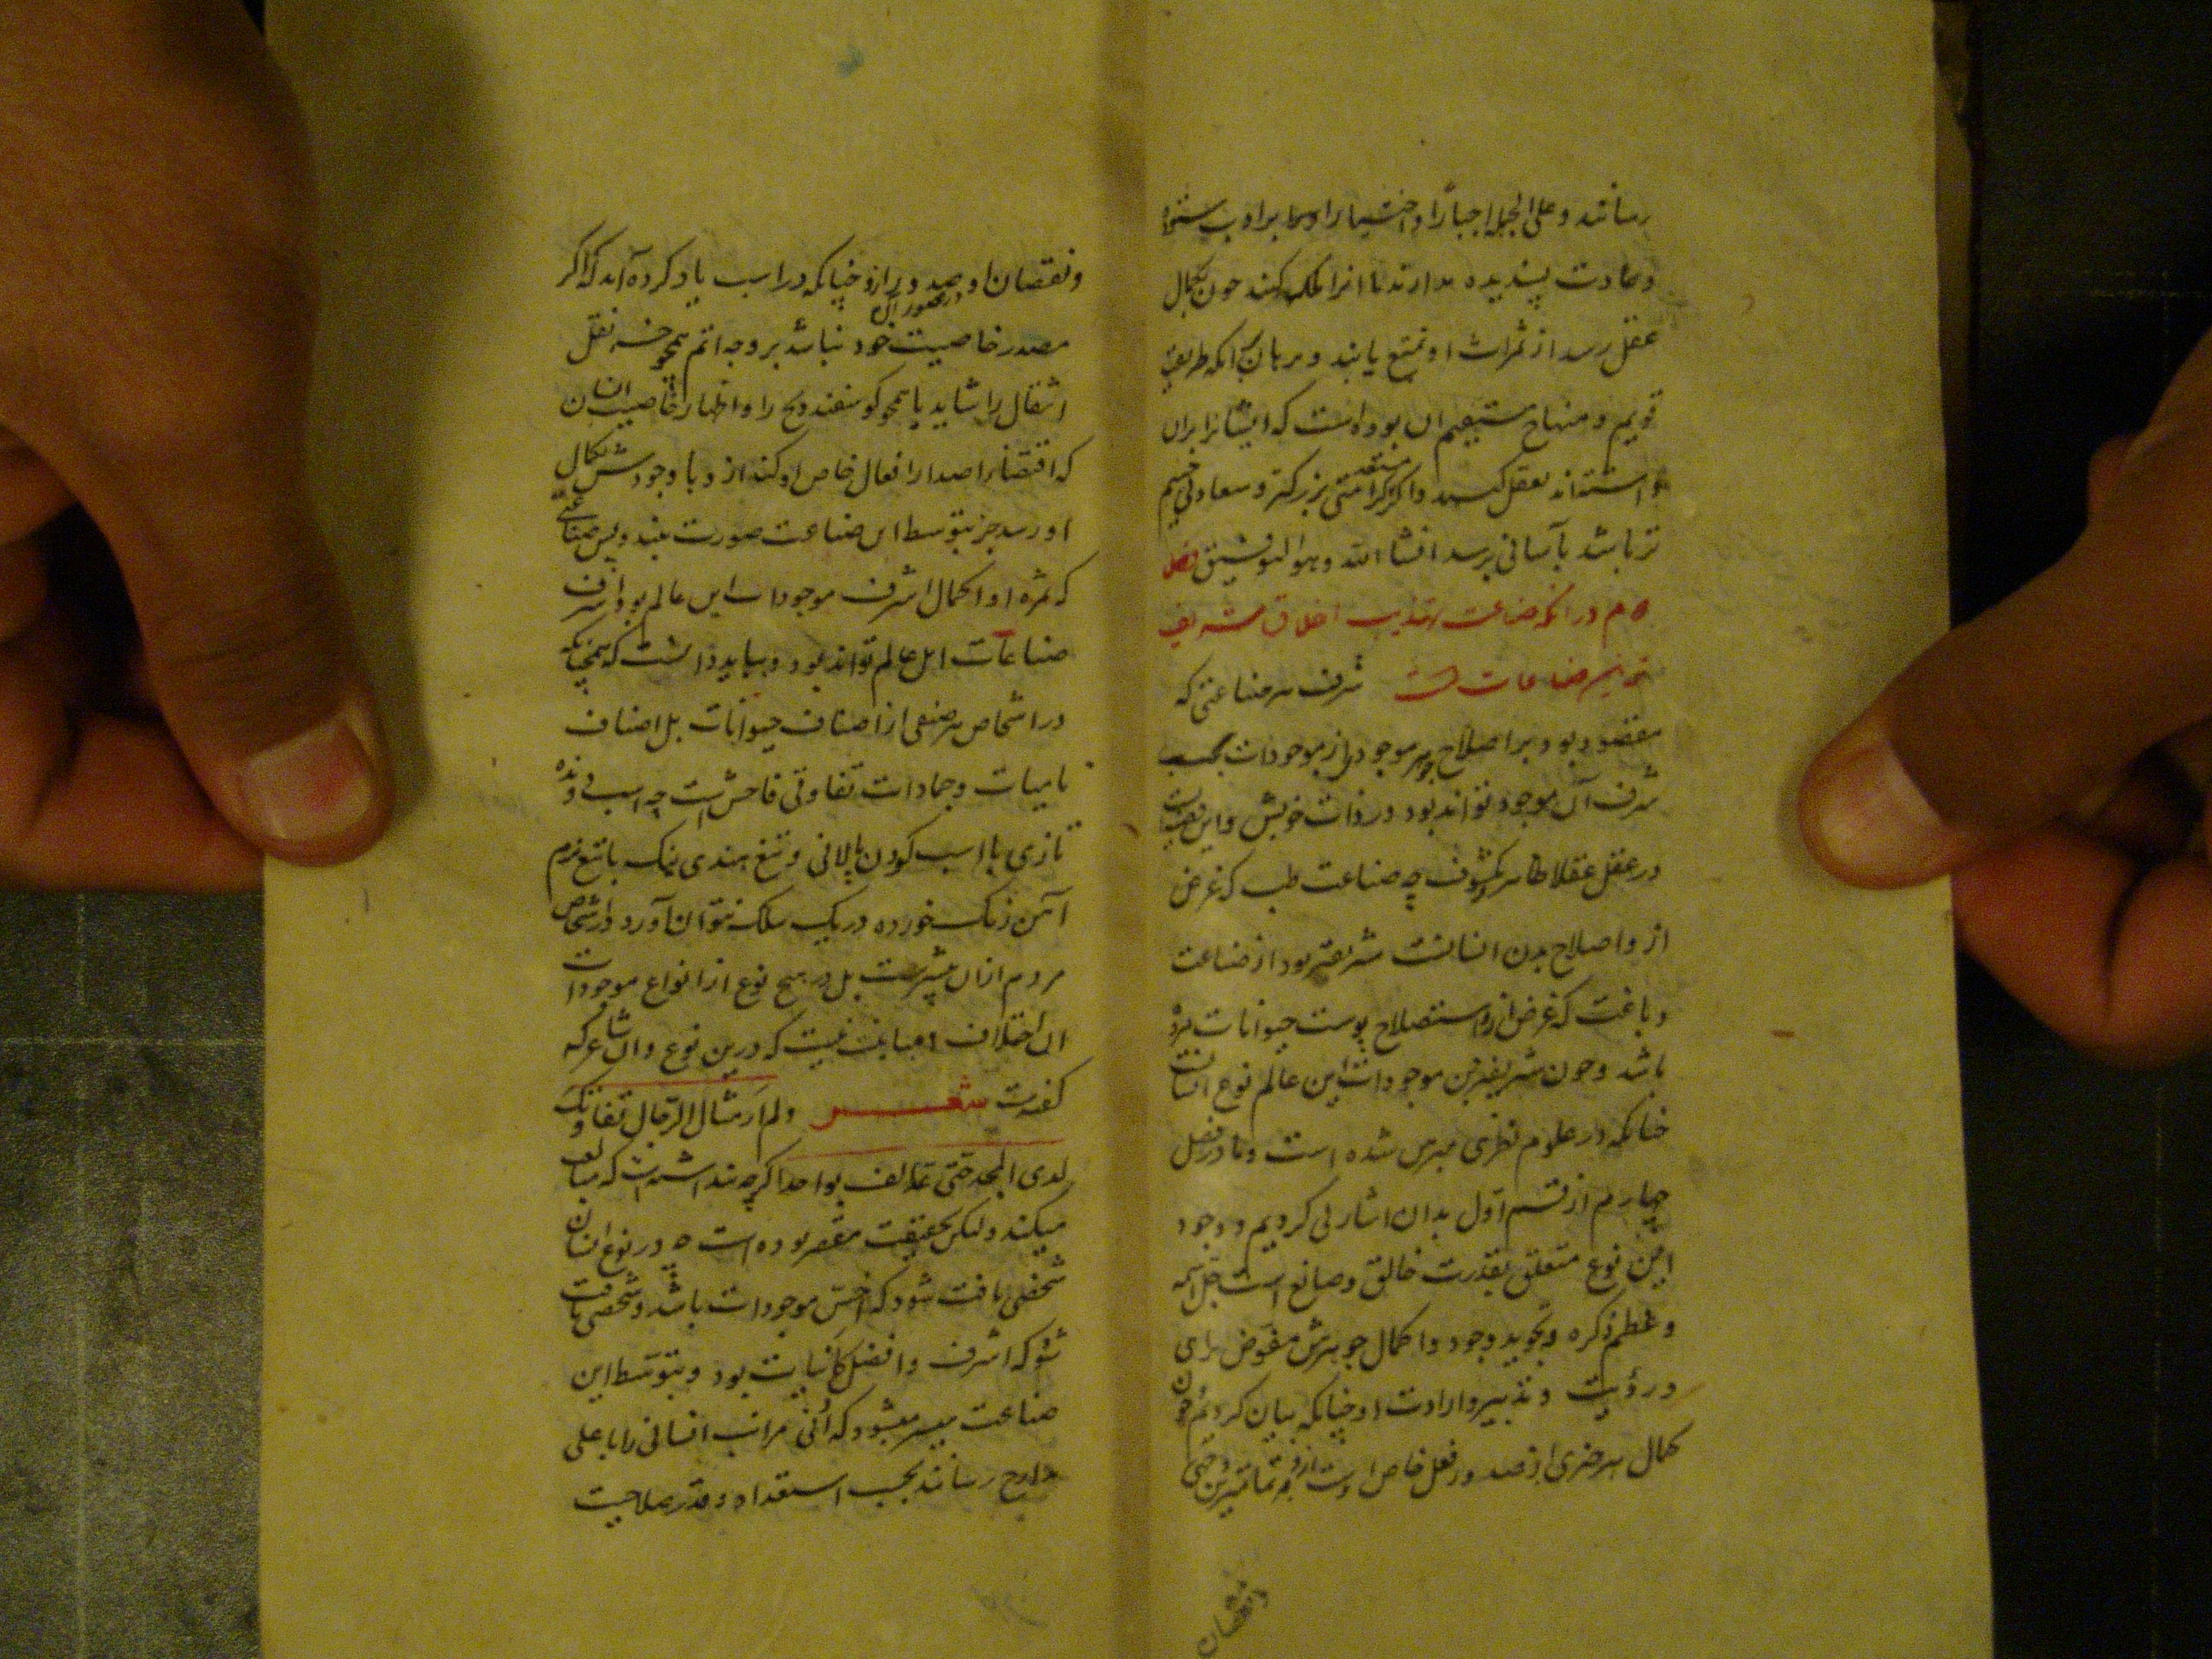 رسانند و علی الجمله اجبارا و اختیارا ایشانرا بر آداب ستوده
و عادت پسندیده بدارند تا انرا ملکه کنند چون بکمال
عقل رسد از ثمرات او تمتع یابند و برهان بر آنکه طریق
قویم و منهاج مستقیم آن بوده است که ایشانرا بران
داشته‌اند تعقل کنند و اگر مستعد کرامتی بزرکتر و سعادتی جسیم
تر باشد بآسانی برسد انشا الله و هو التوفیق فصل
دوم در انکه صناعت تهذیب اخلاق شریف
ترین صناعات است شرف هر صناعتی که
مقصود بود بر اصلاح جوهر موجودی از موجودات بحسب
شرف آن موجود تواند بود در ذات خویش و این قضیت
در عقل عقلا ظاهر و مکشوف چه صناعت طب که غرض
از و اصلاح بدن انسانست شریفتر بود از صناعت
دباغت که غرض ازو استصلاح پوست حیوانات مرده
باشد و چون شریفترین موجودات این عالم نوع انسانست
چنانکه در علوم نظری مبرهن شده است و ما در فصل
چهارم از قسم اول بدان اشارتی کردیم و وجود
این نوع متعلق بقدرت خالق و صانع است جل اسمه
و عظم ذکره و تجوید وجود و اکمال جوهرش مفوض برای
و رؤیت و تدبیر و ارادت او چنانکه بیان کردیم چون
کمال هر چیزی از صدور فعل خاص اوست ازو بر تمامترین وجهی
و نقصان
و نقصان او صدور ازو چنانکه در اسب یاد کرده آمد که اگر
مصدر خاصیت خود نباشد بر وجه اتم همچو خر نقل
اثقال را شاید یا همچو کوسفند ذبح را و اظهار خاصیت انسان
که اقتضاء اصدار افعال خاص او کند ازو تا وجودش بکمال
او رسد جز بتوسط این صناعت صورت نبندد پس صناعتی
که ثمره او اکمال اشرف موجودات این عالم بود اشرف
صناعات اهل عالم تواند بود و بباید دانست که همچنانکه
در اشخاص هر صنفی از اصناف حیوانات بل اصناف
نامیات و جمادات تفاوتی فاحش است چه اسب دونده
تازی با اسب کودن پالانی و تیغ هندی نیک با تیغ نرم
آهن زنک خورده در یک سلک نتوان آورد در اشخاص
مردم ازان بیشترست بل در هیچ نوع از انواع موجودات
ان اختلاف و مباینت نیست که درین نوع و ان شاعر که
گفت شعر ولم ار امثال الرجال تفاوتت
لدی المجد حتی عد الف بواحد اگرچه پنداشتست که مبالغه
میکند ولیکن بحقیقت مقصر بوده است چه در نوع انسان
شخصی یافت شود که اخس موجودات باشد و شخصی یافت
شود که اشرف و افضل کاینات بود و بتوسط این
صناعت میسر میشود که ادنی مراتب انسانی را با علی
مدارج رسانند بحسب استعداد و قدر صلاحیت